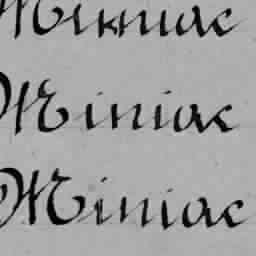 Miniac
Miniac
Miniac